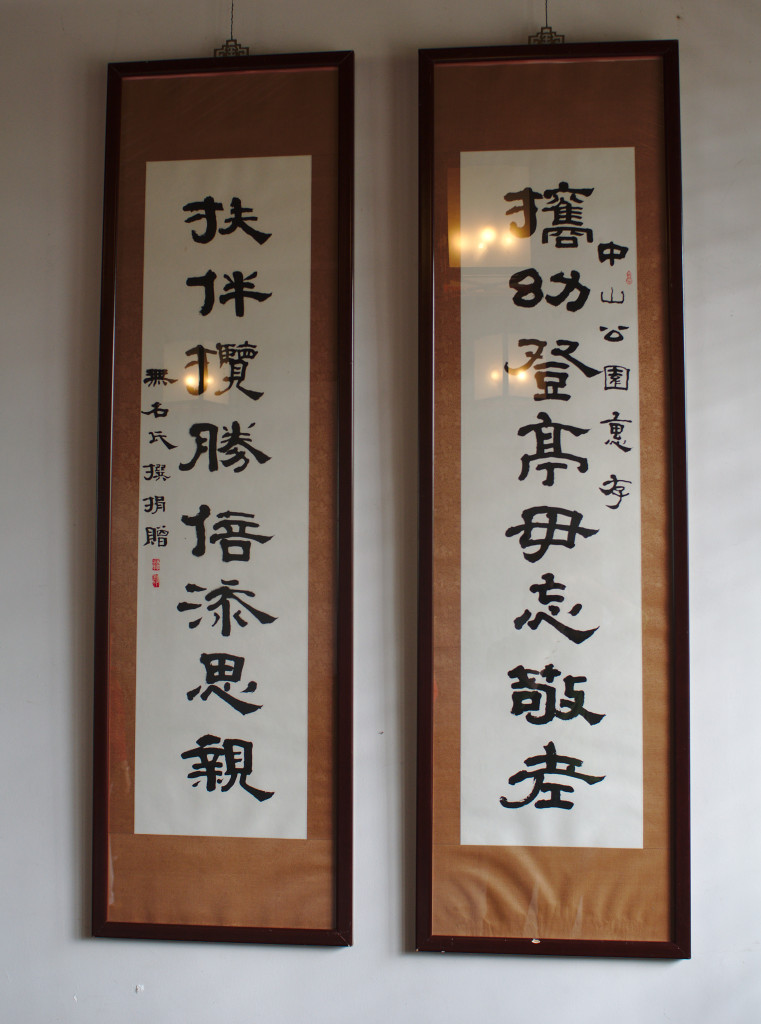 中山公園惠存
攜幼登亭毋忘敬老
扶伴攬勝倍添思親
無名氏撰捐贈